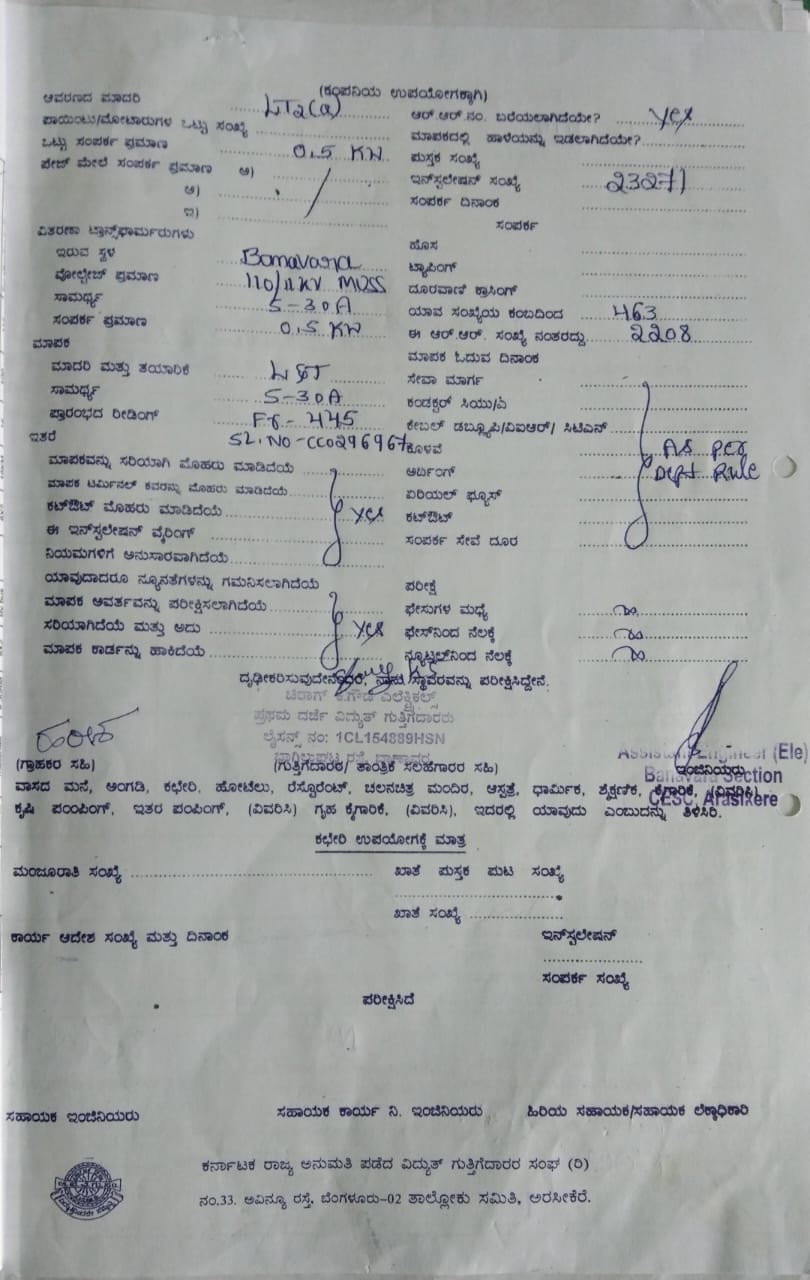 (ಕಂಪನಿಯ ಉಪಯೋಗಕ್ಕಾಗಿ)
ಆವರಣದ ಮಾದರಿ LT2(a)
ಪಾಯಿಂಟು/ಮೋಟಾರುಗಳ ಒಟ್ಟು ಸಂಖ್ಯೆ
ಒಟ್ಟು ಸಂಪರ್ಕ ಪ್ರಮಾಣ 0.5 KW
ಫೇಜ್ ಮೇಲೆ ಸಂಪರ್ಕ ಪ್ರಮಾಣ ಅ)
ಆ)
ಇ)
ವಿತರಣಾ ಟ್ರಾನ್ಸ್‌ಫಾರ್ಮರುಗಳು
ಇರುವ ಸ್ಥಳ Banavara
ವೋಲ್ಟೇಜ್ ಪ್ರಮಾಣ 110/11KV MUSS
ಸಾಮರ್ಥ್ಯ 5-30A
ಸಂಪರ್ಕ ಪ್ರಮಾಣ 0.5 KW
ಮಾಪಕ
ಮಾದರಿ ಮತ್ತು ತಯಾರಿಕೆ L&T
ಸಾಮರ್ಥ್ಯ 5-30A
ಪ್ರಾರಂಭದ ರೀಡಿಂಗ್ FR-445
SL.NO-CC0296967
ಇತರೆ
ಮಾಪಕವನ್ನು ಸರಿಯಾಗಿ ಮೊಹರು ಮಾಡಿದೆಯೆ
ಮಾಪಕ ಟರ್ಮಿನಲ್ ಕವರನ್ನು ಮೊಹರು ಮಾಡಿದೆಯೆ
ಕಟ್‌ಔಟ್ ಮೊಹರು ಮಾಡಿದೆಯೆ yes
ಈ ಇನ್‌ಸ್ಟಲೇಷನ್ ವೈರಿಂಗ್
ನಿಯಮಗಳಿಗೆ ಅನುಸಾರವಾಗಿದೆಯೆ
ಯಾವುದಾದರೂ ನ್ಯೂನತೆಗಳನ್ನು ಗಮನಿಸಲಾಗಿದೆಯೆ
ಮಾಪಕ ಆವರ್ತವನ್ನು ಪರೀಕ್ಷಿಸಲಾಗಿದೆಯೆ
ಸರಿಯಾಗಿದೆಯೆ ಮತ್ತು ಅದು yes
ಮಾಪಕ ಕಾರ್ಡನ್ನು ಹಾಕಿದೆಯೆ
ಆರ್.ಆರ್.ನಂ. ಬರೆಯಲಾಗಿದೆಯೇ? yes
ಮಾಪಕದಲ್ಲಿ ಹಾಳೆಯನ್ನು ಇಡಲಾಗಿದೆಯೇ?
ಪುಸ್ತಕ ಸಂಖ್ಯೆ
ಇನ್‌ಸ್ಟಲೇಷನ್ ಸಂಖ್ಯೆ 23271
ಸಂಪರ್ಕ ದಿನಾಂಕ
ಸಂಪರ್ಕ
ಹೊಸ
ಟ್ಯಾಪಿಂಗ್
ದೂರವಾಣಿ ಕ್ರಾಸಿಂಗ್
ಯಾವ ಸಂಖ್ಯೆಯ ಕಂಬದಿಂದ 463
ಈ ಆರ್.ಆರ್. ಸಂಖ್ಯೆ ನಂತರದ್ದು 2208
ಮಾಪಕ ಓದುವ ದಿನಾಂಕ
ಸೇವಾ ಮಾರ್ಗ
ಕಂಡಕ್ಟರ್ ಸಿಯು/ಏ
ಕೇಬಲ್ ಡಬ್ಲ್ಯೂಪಿ/ವಿಐಆರ್/ ಸಿಟಿಎಸ್
ಕೊಳವೆ As per
ಅರ್ದಿಂಗ್ Dept Rule
ಏರಿಯಲ್ ಫ್ಯೂಸ್
ಕಟ್‌ಔಟ್
ಸಂಪರ್ಕ ಸೇವೆ ದೂರ
ಪರೀಕ್ಷೆ
ಫೇಸುಗಳ ಮಧ್ಯೆ ∞
ಫೇಸ್‌ನಿಂದ ನೆಲಕ್ಕೆ ∞
ನ್ಯೂಟ್ರಲ್‌ನಿಂದ ನೆಲಕ್ಕೆ ∞
ದೃಢೀಕರಿಸುವುದೇನೆಂದರೆ, ನಾನು ಸ್ಥಾವರವನ್ನು ಪರೀಕ್ಷಿಸಿದ್ದೇನೆ.
ಚಿರಾಗ್ ಕೆ.ಗೌಡ ಎಲೆಕ್ಟ್ರಿಕಲ್ಸ್
ಪ್ರಥಮ ದರ್ಜೆ ವಿದ್ಯುತ್ ಗುತ್ತಿಗೆದಾರರು
ಲೈಸನ್ಸ್ ನಂ: 1CL154889HSN
Assistant Engineer (Ele)
Banavara Section
CESC, Arasikere
(ಗ್ರಾಹಕರ ಸಹಿ) (ಗುತ್ತಿಗೆದಾರರ/ ತಾಂತ್ರಿಕ ಸಲಹೆಗಾರರ ಸಹಿ) ಇಂಜಿನಿಯರು
ವಾಸದ ಮನೆ, ಅಂಗಡಿ, ಕಛೇರಿ, ಹೋಟೆಲು, ರೆಸ್ಟೊರೆಂಟ್, ಚಲನಚಿತ್ರ ಮಂದಿರ, ಆಸ್ಪತ್ರೆ, ಧಾರ್ಮಿಕ, ಶೈಕ್ಷಣಿಕ, ಕೈಗಾರಿಕೆ, (ವಿವರಿಸಿ)
ಕೃಷಿ ಪಂಪಿಂಗ್, ಇತರ ಪಂಪಿಂಗ್, (ವಿವರಿಸಿ) ಗೃಹ ಕೈಗಾರಿಕೆ, (ವಿವರಿಸಿ), ಇದರಲ್ಲಿ ಯಾವುದು ಎಂಬುದನ್ನು ತಿಳಿಸಿರಿ.
ಕಛೇರಿ ಉಪಯೋಗಕ್ಕೆ ಮಾತ್ರ
ಮಂಜೂರಾತಿ ಸಂಖ್ಯೆ ಖಾತೆ ಪುಸ್ತಕ ಪುಟ ಸಂಖ್ಯೆ
ಖಾತೆ ಸಂಖ್ಯೆ
ಕಾರ್ಯ ಆದೇಶ ಸಂಖ್ಯೆ ಮತ್ತು ದಿನಾಂಕ ಇನ್‌ಸ್ಟಲೇಷನ್
ಸಂಪರ್ಕ ಸಂಖ್ಯೆ
ಪರೀಕ್ಷಿಸಿದೆ
ಸಹಾಯಕ ಇಂಜಿನಿಯರು ಸಹಾಯಕ ಕಾರ್ಯ ನಿ. ಇಂಜಿನಿಯರು ಹಿರಿಯ ಸಹಾಯಕ/ಸಹಾಯಕ ಲೆಕ್ಕಾಧಿಕಾರಿ
ಕರ್ನಾಟಕ ರಾಜ್ಯ ಅನುಮತಿ ಪಡೆದ ವಿದ್ಯುತ್ ಗುತ್ತಿಗೆದಾರರ ಸಂಘ (ರಿ)
ನಂ.33. ಅವಿನ್ಯೂ ರಸ್ತೆ, ಬೆಂಗಳೂರು-02 ತಾಲ್ಲೋಕು ಸಮಿತಿ, ಅರಸೀಕೆರೆ.